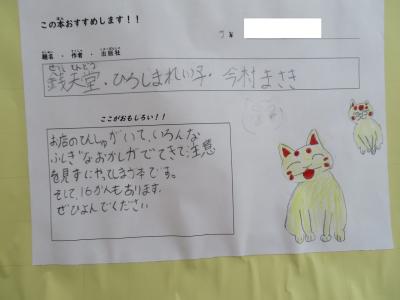 この本おすすめします！！
題名・作者・出版社
銭天堂・ひろしまれい子・今村まさき
ここがおもしろい！！
お店のてんしゅがいて、いろんな
ふしぎなおかしがでてきて、注意
を見ずにやってしまう本です。
そして、16かんもあります。
ぜひよんでください